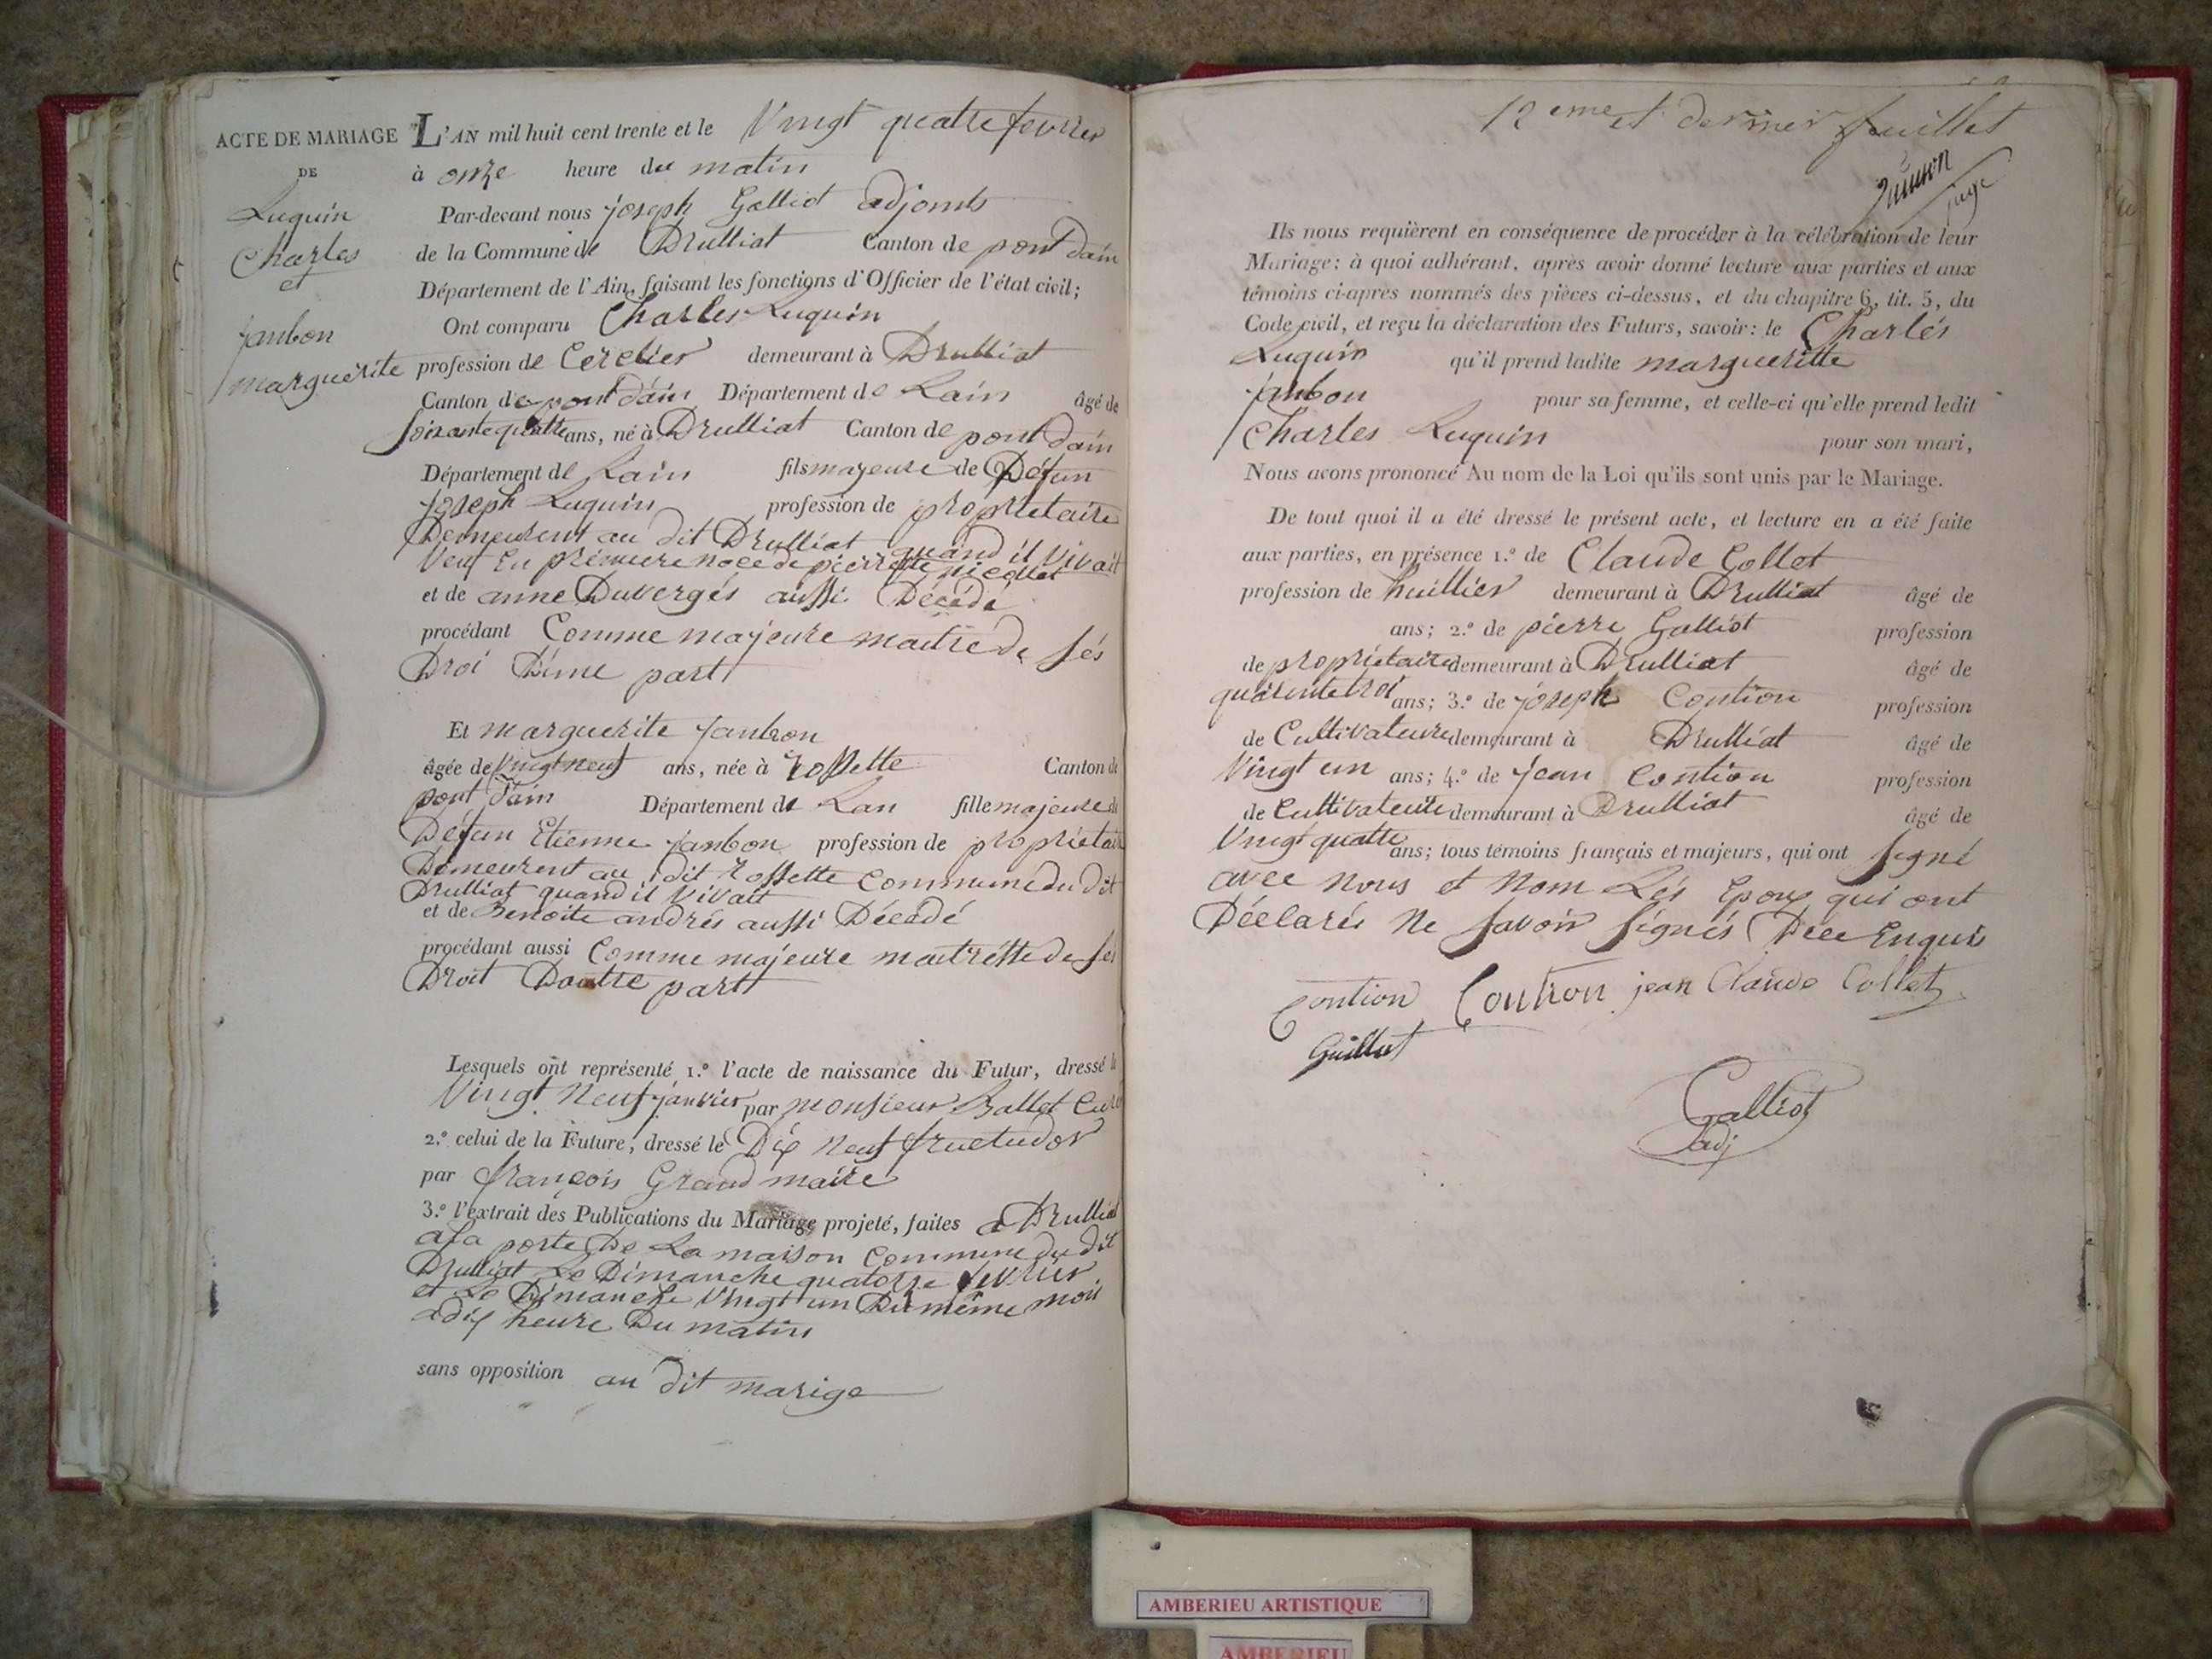 ACTE DE MARIAGE
DE
Luquin
Charles
et
janbon
marguerite
L'AN mil huit cent trente et le Vingt quatre fevrier
à onze heure du matin
Par-devant nous joseph Galliot adjoints
de la Commune de Drulliat Canton de pont dain
Département de l'Ain, faisant les fonctions d'Officier de l'état civil;
Ont comparu Charles Luquin
profession de Cerclier demeurant à Drulliat
Canton de pont dain Département de Lain âgé de
soixante quatre ans, né à Drulliat Canton de pont dain
Département de Lain fils majeure de Défun
joseph Luquin profession de proprietaire
Demeurent au dit Drulliat quand il vivait
Veuf en premiere noce de pierrette nicollet
et de anne Duvergés aussi Décédé
procédant Comme majeure maitre de sés
Droi D'une part
Et marguerite janbon
âgée de Vingt neuf ans, née à rossette Canton de
pont dain Département de Lan fille majeure de
Défun Etienne janbon profession de propriétaire
Demeurent au dit rossette Commune du dit
Drulliat quand il vivait
et de Benoite andrés aussi Décédé
procédant aussi Comme majeure maitresse de sés
Droit Dautre part
Lesquels ont représenté 1.º l'acte de naissance du Futur, dressé le
Vingt Neuf janvier par monsieur Ballet Curé
2.º celui de la Future, dressé le Dix neuf fructudor
par françois Grand maire
3.º l'extrait des Publications du Mariage projeté, faites a Drulliat
a la porte De La maison Commune du dit
Drulliat Le Dimanche quatorze fevrier
et Le Dimanche Vingt un Du même moi
a dix heure Du matin
sans opposition au dit marige
12 eme et dernier feuillet
juge
Ils nous requièrent en conséquence de procéder à la célébration de leur
Mariage: à quoi adhérant, après avoir donné lecture aux parties et aux
témoins ci-après nommés des pièces ci-dessus, et du chapitre 6, tit. 5, du
Code civil, et reçu la déclaration des Futurs, savoir: le Charlés
Luquin qu'il prend ladite margueritte
janbon pour sa femme, et celle-ci qu'elle prend ledit
Charles Luquin pour son mari,
Nous avons prononcé Au nom de la Loi qu'ils sont unis par le Mariage.
De tout quoi il a été dressé le présent acte, et lecture en a été faite
aux parties, en présence 1.º de Claude Collet
profession de huillier demeurant à Drulliat âgé de
ans; 2.º de pierre Galliot profession
de propriétaire demeurant à Drulliat âgé de
quarente troi ans; 3.º de joseph Contion profession
de Cultivateure demeurant à Drulliat âgé de
Vingt un ans; 4.º de jean Contion profession
de Cultivateure demeurant à Drulliat âgé de
Vingt quatre ans; tous témoins français et majeurs, qui ont signé
avec nous et nom Lés Epoux qui ont
Déclarés ne savoir signés Dece Enquis
Contion Contion jean Claude Collet
Guillot
Galliot
adj
AMBERIEU ARTISTIQUE
AMBERIEU